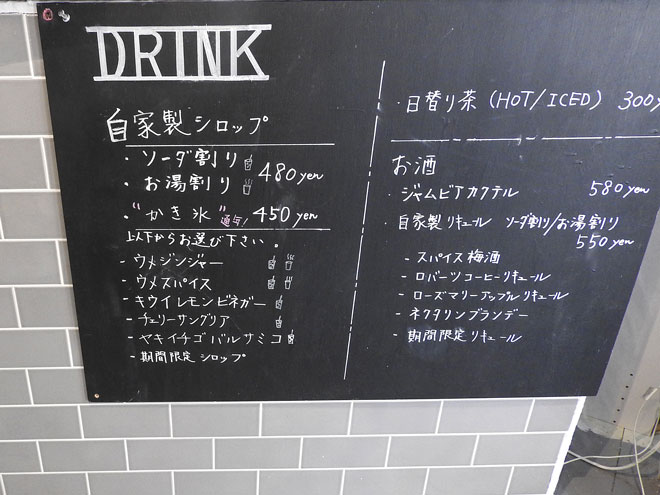 DRINK
自家製シロップ
・ソーダ割り
・お湯割り
480yen
・"かき氷"通年! 450yen
以下からお選び下さい。
- ウメジンジャー
- ウメスパイス
- キウイレモンビネガー
- チェリーサングリア
- ヤキイチゴバルサミコ
- 期間限定シロップ
・日替り茶 (HOT/ICED) 300y
お酒
・ジャムビアカクテル 580yen
・自家製リキュール ソーダ割り/お湯割り
550yen
- スパイス梅酒
- ロバーツコーヒーリキュール
- ローズマリーアップルリキュール
- ネクタリンブランデー
- 期間限定リキュール